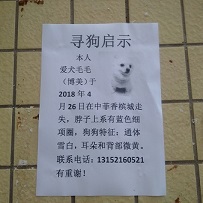 寻狗启示
本人
爱犬毛毛
（博美）于
2018 年 4
月 26 日在中菲香槟城走
失，脖子上系有蓝色细
项圈，狗狗特征：通体
雪白，耳朵和背部微黄。
联系电话：13152160521
有重谢！